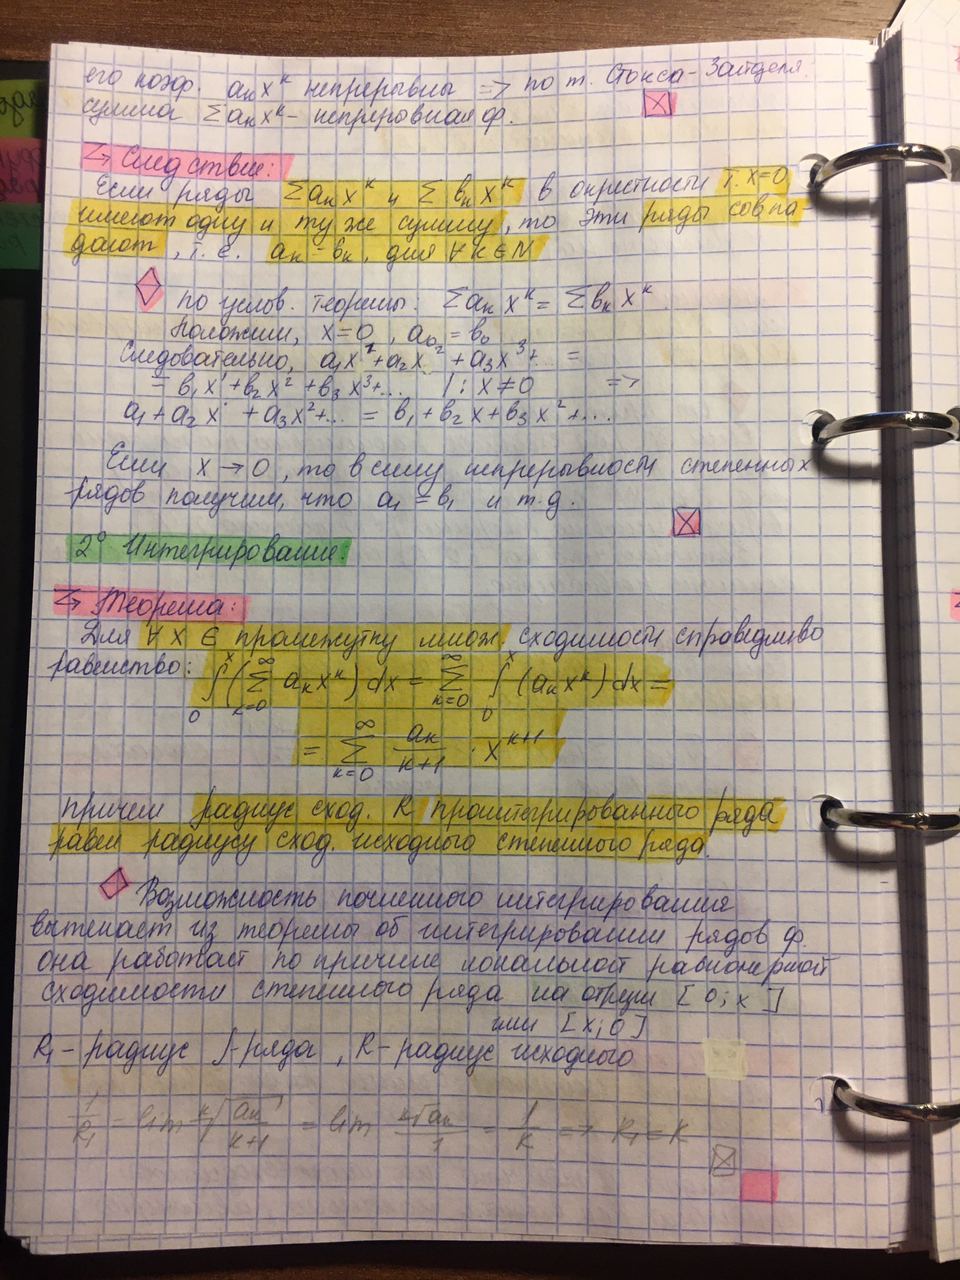 его коэф. aₖxᵏ непрерывны => по т. Стокса-Зайделя.
сумма ∑aₖxᵏ - непрерывная ф.
Следствие:
Если ряды ∑aₖxᵏ и ∑bₖxᵏ в окрестности т. x=0
имеют одну и ту же сумму, то эти ряды совпа
дают, т.е. aₖ = bₖ, для ∀k∈N
по услов. теоремы: ∑aₖxᵏ = ∑bₖxᵏ
Положим, x=0, a₀ = b₀
Следовательно, a₁x¹+a₂x²+a₃x³+... =
= b₁x¹+b₂x²+b₃x³+... |: x≠0 =>
a₁+a₂x¹+a₃x²+... = b₁+b₂x+b₃x²+...
Если x→0, то в силу непрерывности степенных
рядов получим, что a₁=b₁ и т.д.
2° Интегрирование.
Теорема:
Для ∀x∈ промежутку множ. сходимости справедливо
равенство: ∫₀ˣ(∑ₖ₌₀^∞ aₖxᵏ)dx = ∑ₖ₌₀^∞ ∫₀ˣ(aₖxᵏ)dx =
= ∑ₖ₌₀^∞ aₖ/(k+1) · xᵏ⁺¹
причем радиус сход. R проинтегрированного ряда
равен радиусу сход. исходного степенного ряда.
Возможность почленного интегрирования
вытекает из теоремы об интегрировании рядов ф.
она работает по причине локальной равномерной
сходимости степенного ряда на отрезк [0;x]
или [x;0]
R₁ - радиус ∫-ряда, R - радиус исходного
1/R₁ = lim ᵏ√(aₖ/(k+1)) = lim ᵏ√aₖ/1 = 1/R => R₁=R